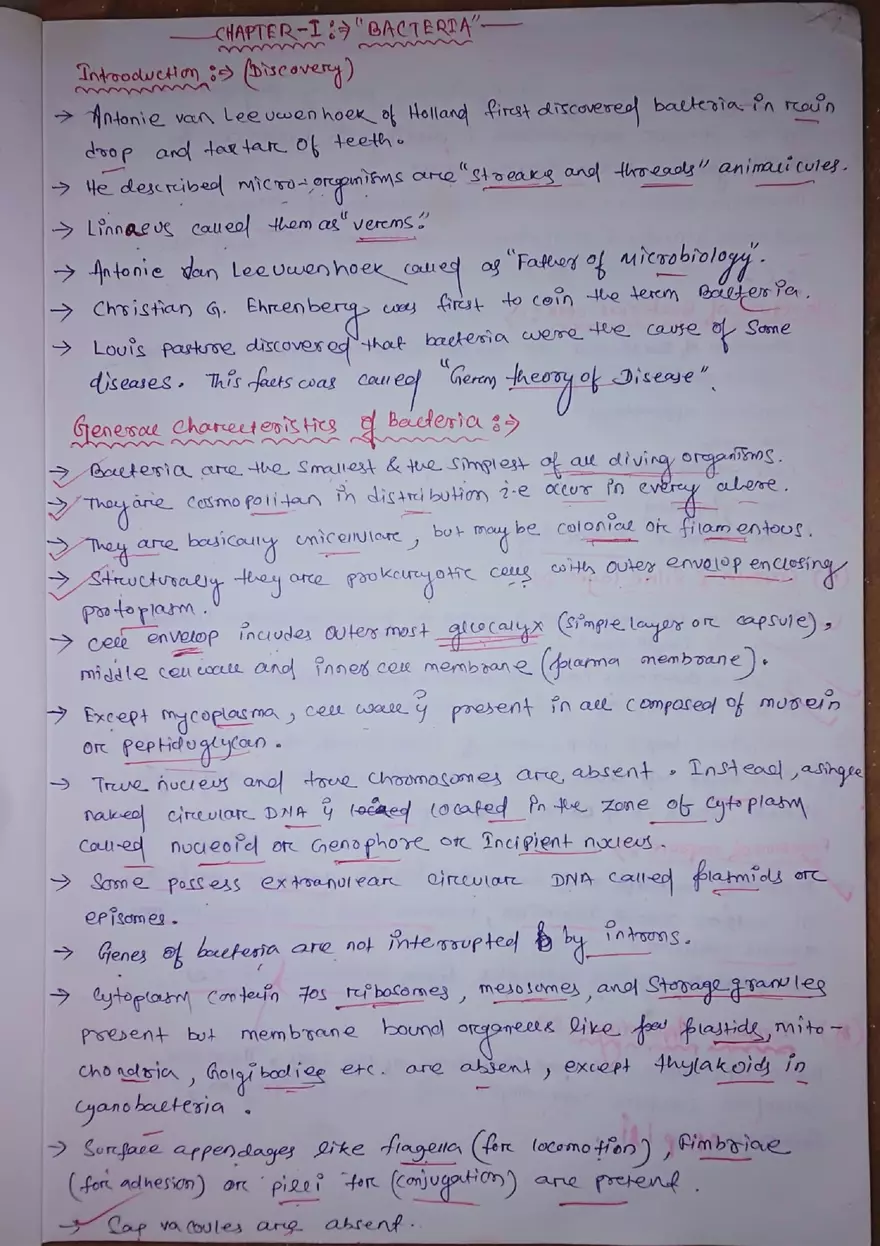 CHAPTER-I :→ "BACTERIA"
Introduction :→ (Discovery)
→ Antonie van Leeuwenhoek of Holland first discovered bacteria in rain
drop and tartar of teeth.
→ He described micro-organisms are "streaks and threads" animalicules.
→ Linnaeus called them as "verms."
→ Antonie Van Leeuwenhoek called as "Father of Microbiology".
→ Christian G. Ehrenberg was first to coin the term Bacteria.
→ Louis pasture discovered that bacteria were the cause of some
diseases. This facts was called "Germ theory of Disease".
General Characteristics of Bacteria :→
→ Bacteria are the smallest & the simplest of all diving organisms.
→ They are cosmopolitan in distribution i.e occur in every where.
→ They are basically unicellular, but may be colonial or filamentous.
→ Structurally they are prokaryotic cells with outer envelop enclosing
protoplasm.
→ cell envelop includes outer most glycocalyx (simple layer or capsule),
middle cell wall and inner cell membrane (plasma membrane).
→ Except mycoplasma, cell wall is present in all composed of murein
or peptidoglycan.
→ True nucleus and true chromosomes are absent. Instead, a single
naked circular DNA is located in the zone of cytoplasm
called nucleoid or Genophore or Incipient nucleus.
→ Some possess extranulear circular DNA called plasmids or
episomes.
→ Genes of bacteria are not interrupted by introns.
→ Cytoplasm contain 70s ribosomes, mesosomes, and Storage granules
present but membrane bound organells like plastids, mito-
chondria, Golgi bodies etc. are absent, except thylakoids in
cyanobacteria.
→ Surface appendages like flagella (for locomotion), Fimbriae
(for adhesion) or pilli for (conjugation) are present.
→ Sap vacoules are absent.